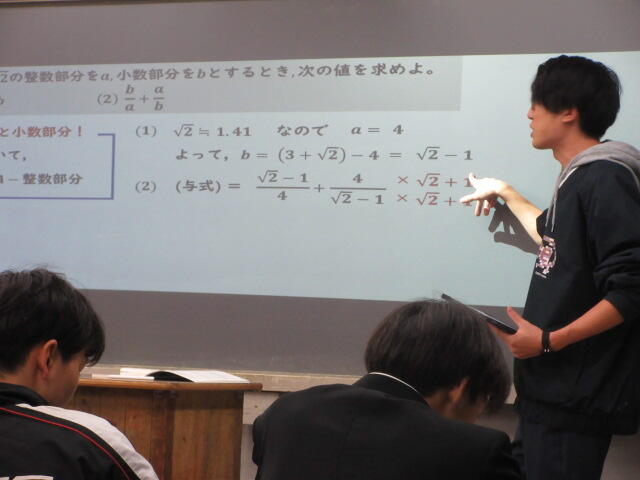 √2の整数部分をa,小数部分をbとするとき,次の値を求めよ。
b (2) b/a + a/b
と小数部分!
いて,
- 整数部分
(1) √2≒1.41 なので a = 4
よって, b = (3 + √2) - 4 = √2 - 1
(2) (与式) = (√2 - 1)/4 + 4/(√2 - 1) × √2 + 1 × √2 + 1